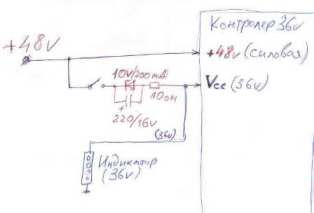 Контролер 36v
+48v
+48v (силовая)
10V/200mA
Vcc (36v)
10 ом
+
220/16v
(36v)
Индикатор
(36v)